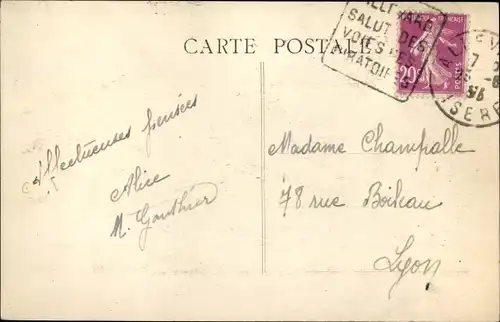 CARTE POSTALE
ALLEVARD
SALUT DES
VOIES RES
PIRATOIRES
20c
POSTES
ALLEVARD
ISERE
Affectueuses pensées
Alice
M. Gauthier
Madame Champalle
78 rue Boileau
Lyon